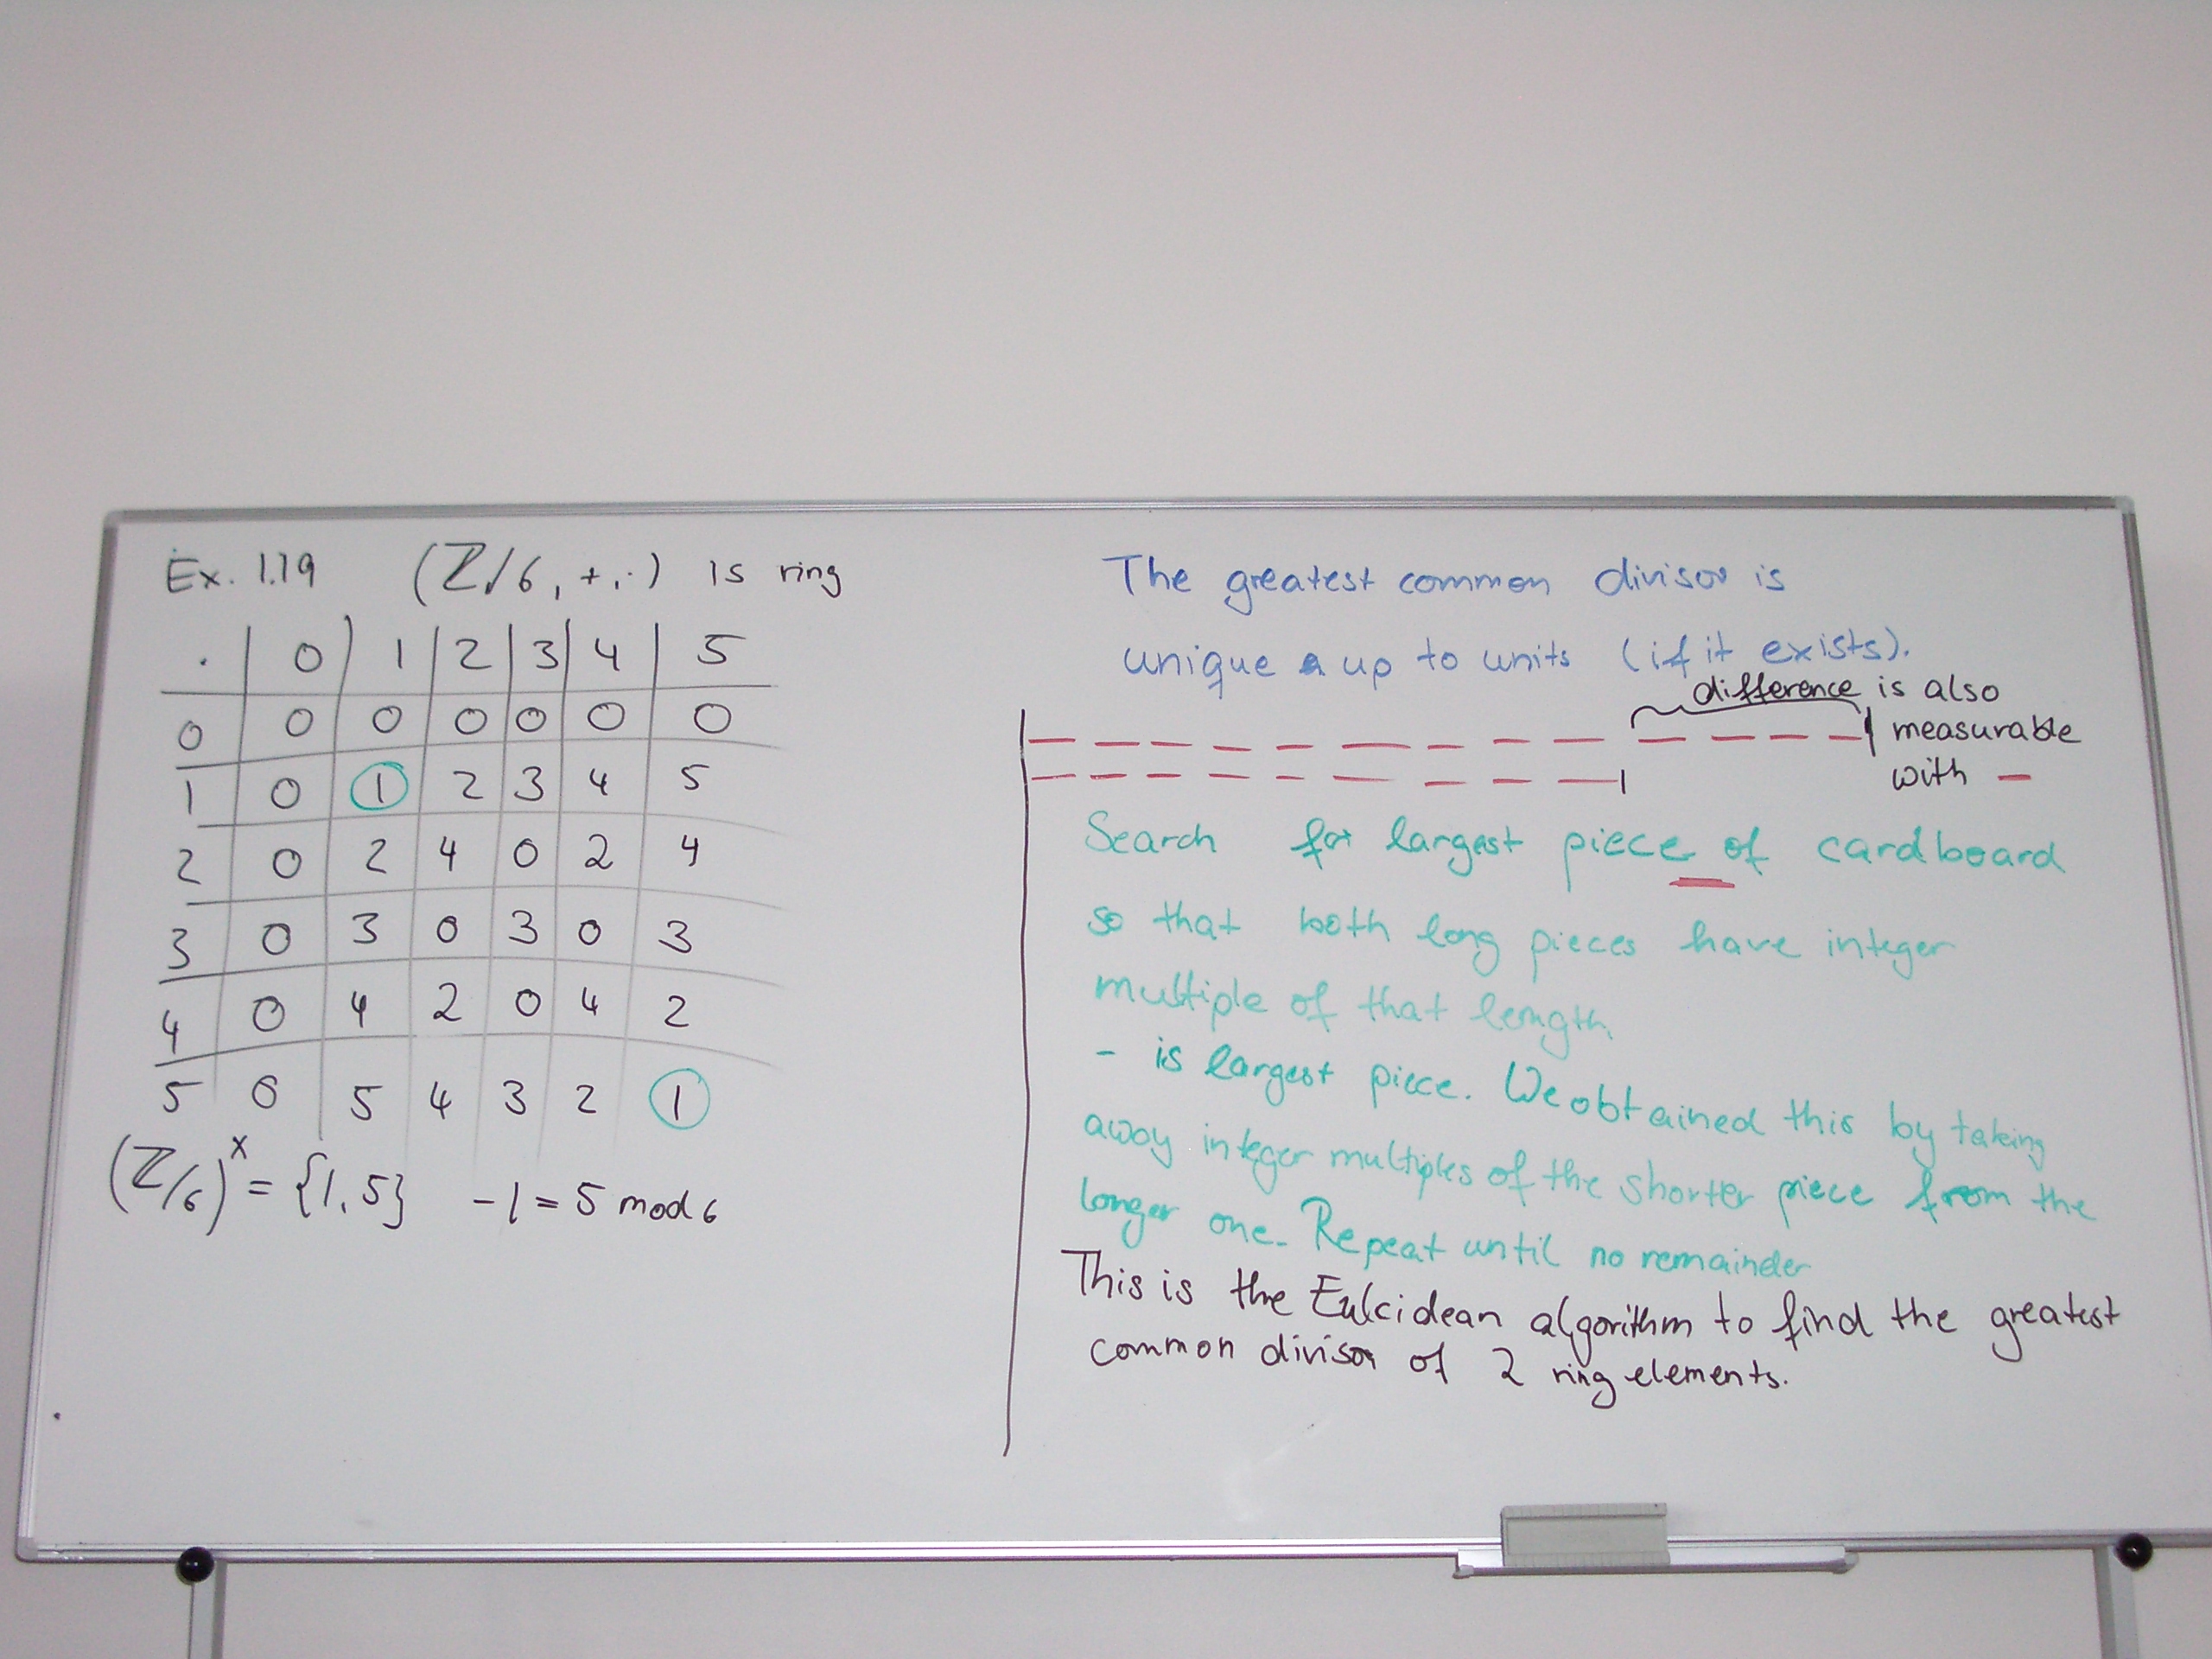 Ex. 1.19 (ℤ/6, +, ·) is ring
· | 0 | 1 | 2 | 3 | 4 | 5
0 | 0 | 0 | 0 | 0 | 0 | 0
1 | 0 | 1 | 2 | 3 | 4 | 5
2 | 0 | 2 | 4 | 0 | 2 | 4
3 | 0 | 3 | 0 | 3 | 0 | 3
4 | 0 | 4 | 2 | 0 | 4 | 2
5 | 0 | 5 | 4 | 3 | 2 | 1
(ℤ/6)^x = {1, 5} -1 = 5 mod 6
The greatest common divisor is
unique up to units (if it exists).
difference is also
measurable
with —
Search for largest piece of cardboard
so that both long pieces have integer
multiple of that length.
- is largest piece. We obtained this by taking
away integer multiples of the shorter piece from the
longer one. Repeat until no remainder
This is the Eulcidean algorithm to find the greatest
common divisor of 2 ring elements.